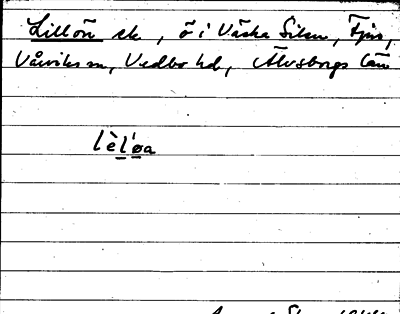 Lillön sk, ö i Västra Silen, Fjus,
Vårviks sn, Vedbo hd, Älvsborgs län
lèl'øa